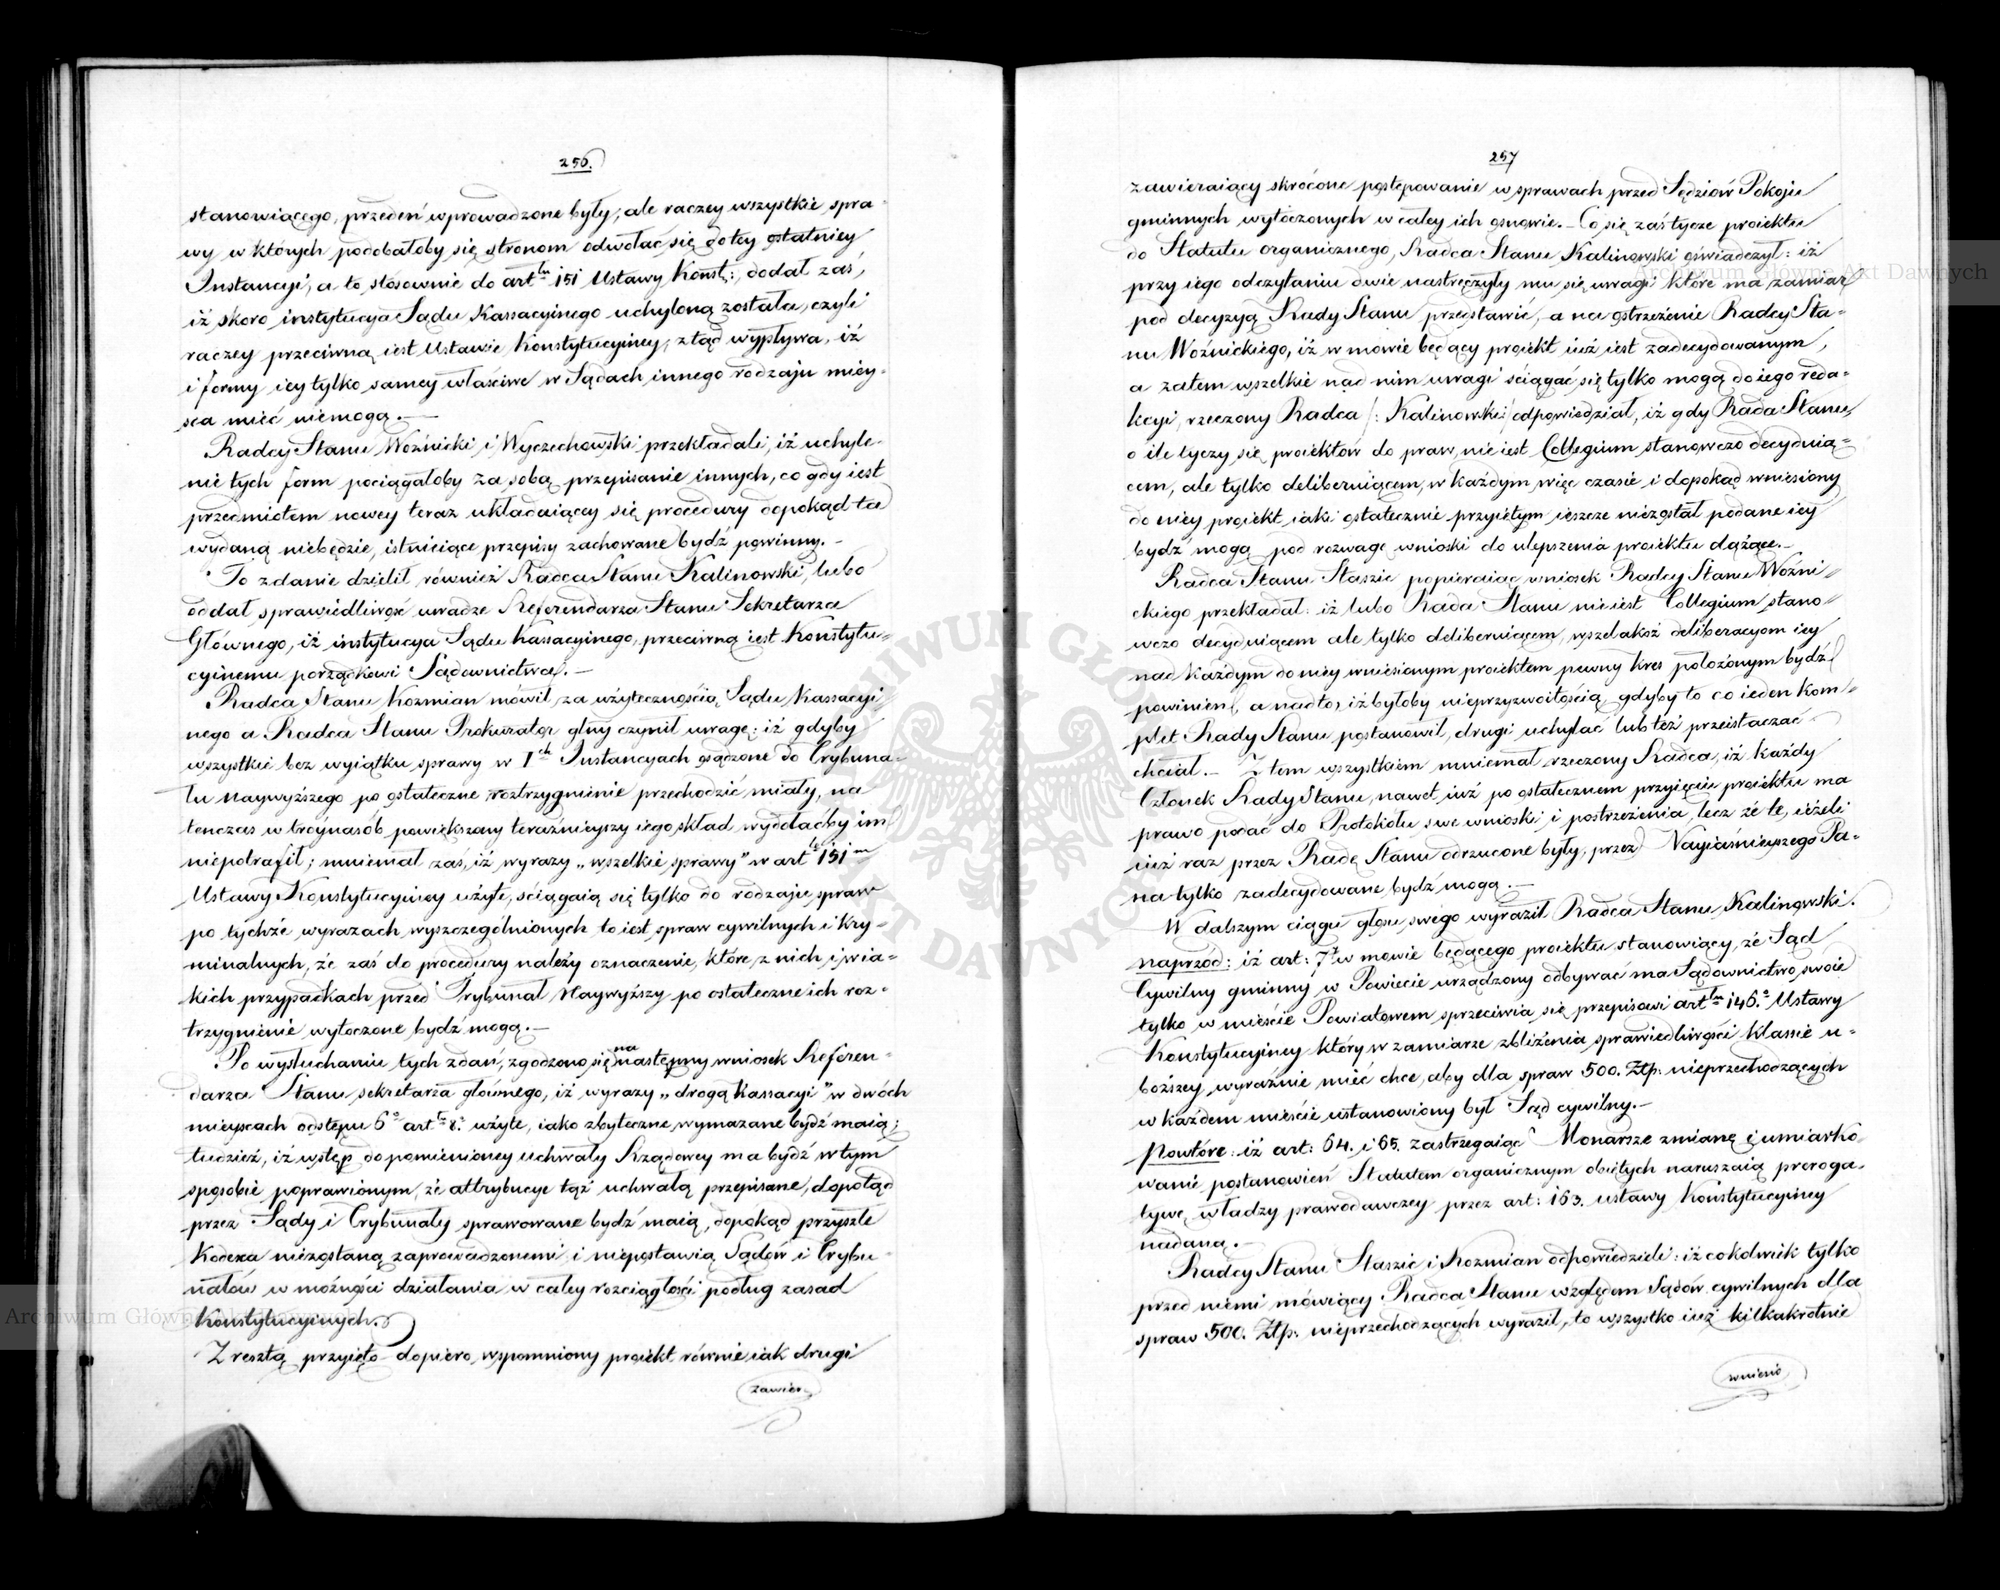 256.
stanowiącego, przedeń wprowadzone były; ale raczey wszystkie spra-
wy w których podobałoby się stronom odwołać się do tey ostatniey
Instancyi, a to stosownie do art<sup>łu</sup> 151 Ustawy Konst:, dodał zaś,
iż skoro instytucya Sądu Kassacyinego uchyloną została, czyli
raczey przeciwną iest Ustawie Konstytucyiney, ztąd wypływa, iż
i formy iey tylko samey właściwe w Sądach innego rodzaju miey-
sca mieć niemogą.—
Radcy Stanu Woźnicki i Wyczechowski przekładali, iż uchyle-
nie tych form pociągałoby za sobą przepisanie innych, co gdy iest
przedmiotem nowey teraz układaiącey się procedury dopokąd ta
wydaną niebędzie, istnieiące przepisy zachowane bydź powinny.—
To zdanie dzielił również Radca Stanu Kalinowski, lubo
oddał sprawiedliwość uwadze Referendarza Stanu Sekretarza
Głównego, iż instytucya Sądu Kassacyinego, przeciwną iest Konstytu-
cyinemu porządkowi Sądownictwa.—
Radca Stanu Kozmian mówił za użytecznością Sądu Kassacyi-
nego a Radca Stanu Prokurator głny czynił uwagę: iż gdyby
wszystkie bez wyiątku sprawy w I<sup>ch</sup> Instancyach osądzone do Trybuna-
łu Naywyższego po ostateczne roztrzygnienie przechodzić miały, na
tenczas w tróynasób powiększany teraźnieyszy iego skład wydołaćby im
niepotrafił; mniemał zaś, iż wyrazy „wszelkie sprawy” w art<sup>le</sup> 151<sup>m</sup>
Ustawy Konstytucyiney użyte, ściągaią się tylko do rodzaju spraw
po tychże wyrazach wyszczególnionych to iest spraw cywilnych i Kry-
minalnych, że zaś do procedury należy oznaczenie, które z nich i w ia-
kich przypadkach przed Trybunał Naywyższy po ostateczne ich roz-
trzygnienie wytoczone bydź mogą.—
Po wysłuchaniu tych zdań, zgodzono się na następny wniosek Referen-
darza Stanu sekretarza głównego, iż wyrazy „drogą Kassacyi” w dwóch
mieyscach odstępu 6° art<sup>łu</sup> 8° użyte, iako zbyteczne wymazane bydź maią;
tudzież, iż wstęp dopomienioney uchwały Rządowey ma bydź w tym
sposobie poprawionym, że attrybucye tąż uchwałą przepisane, dopotąd
przez Sądy i Trybunały sprawowane bydź maią, dopokąd przyszłe
Kodexa niezostaną zaprowadzonemi i niepostawią Sądów i Trybu-
nałów w możności działania w całey rozciągłości podług zasad
Konstytucyinych.
Z resztą przyięto dopiero wspomniony proiekt równie iak drugi
zawier-
257
zawieraiący skrócone postępowanie w sprawach przed Sędziów Pokoju
gminnych wytoczonych w całey ich osnowie.— Co się zaś tycze proiektu
do Statutu organicznego, Radca Stanu Kalinowski oświadczył: iż
przy iego odczytaniu dwie nastręczyły mu się uwagi które ma zamiar
pod decyzyą Rady Stanu przedstawić, a na ostrzeżenie Radcy Sta-
nu Woźnickiego, iż w mowie będący proiekt iuż iest zadecydowanym,
a zatem wszelkie nad nim uwagi ściągać się tylko mogą do iego reda-
kcyi, rzeczony Radca /: Kalinowski :/ odpowiedział, iż gdy Rada Stanu,
o ile tyczy się proiektów do praw, nie iest Collegium stanowczo decyduią-
cem, ale tylko deliberuiącem, w każdym więc czasie i dopokąd wniesiony
do niey proiekt iaki ostatecznie przyiętym ieszcze niezostał podane iey
bydź mogą pod rozwagę wnioski do ulepszenia proiektu dążące.—
Radca Stanu Staszic popieraiąc wniosek Radcy Stanu Woźni-
ckiego przekładał: iż lubo Rada Stanu nie iest Collegium stano-
wczo decyduiącem ale tylko deliberuiącem, wszelakoż deliberacyom iey
nad każdym do niey wniesionym proiektem pewny kres położonym bydź
powinien, a nadto, iż byłoby nieprzyzwoitością, gdyby to co ieden kom-
plet Rady Stanu postanowił, drugi uchylać lub też przeistaczać
chciał.— Z tem wszystkiem mniemał rzeczony Radca, iż każdy
Członek Rady Stanu, nawet iuż po ostatecznem przyięciu proiektu ma
prawo podać do Protokołu swe wnioski i postrzeżenia, lecz że te, ieżeli
iuż raz przez Radę Stanu odrzucone były, przez Nayiaśnieyszego Pa-
na tylko zadecydowane bydź mogą.—
W dalszym ciągu głosu swego wyraził Radca Stanu Kalinowski.
naprzód: iż art: 7<sup>y</sup> w mowie będącego proiektu stanowiący, że Sąd
Cywilny gminny w Powiecie urządzony odbywać ma Sądownictwo swoie
tylko w mieście Powiatowem sprzeciwia się przepisowi art<sup>łu</sup> 146.° Ustawy
Konstytucyiney który w zamiarze zbliżenia sprawiedliwości klassie u-
boższey, wyraźnie mieć chce, aby dla spraw 500. Złp. nieprzechodzących
w każdem mieście ustanowiony był Sąd cywilny.—
Powtóre: iż art: 64. i 65. zastrzegaiąc Monarsze zmianę i umiarko-
wanie postanowień Statutem organicznym obiętych naruszaią preroga-
tywę władzy prawodawczey przez art: 163. ustawy Konstytucyiney
nadaną.—
Radcy Stanu Staszic i Kozmian odpowiedzieli: iż cokolwiek tylko
przed niemi mówiący Radca Stanu względem Sądów cywilnych dla
spraw 500. Złp: nieprzechodzących wyraził, to wszystko iuż kilkakrotnie
wniesio
Archiwum Główne Akt Dawnych
Archiwum Główne Akt Dawnych
ARCHIWUM GŁÓWNE AKT DAWNYCH